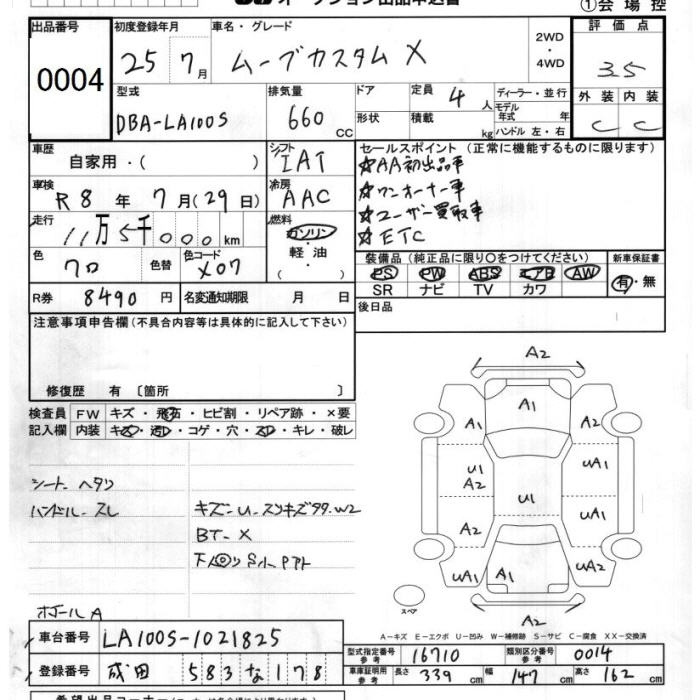 オークション出品申込書
①会場控
出品番号
0004
初度登録年月
25 7月
車名・グレード
ムーブカスタム X
2WD
・
4WD
評価点
3.5
外装 内装
C C
型式
DBA-LA100S
排気量
660 CC
ドア
形状
定員 4 人
積載 kg
ディーラー・並行
モデル年式 年
ハンドル 左・右
車歴
自家用・( )
シフト
IAT
セールスポイント (正常に機能するものに限ります)
☆AA初出品車
☆ワンオーナー車
☆ユーザー買取車
☆ETC
車検
R8 年 7月(29日)
冷房
AAC
走行
11万5千000km
燃料
ガソリン
・
軽油
・
( )
色
クロ
色替
色コード
X07
装備品 (純正品に限り○をつけてください)
新車保証書
PS PW ABS エアB AW
SR ナビ TV カワ
有・無
R券 8490円
名変通知期限 月 日
後日品
注意事項申告欄(不具合内容等は具体的に記入して下さい)
修復歴 有 〔箇所 〕
検査員
記入欄
FW キズ・飛石・ヒビ割・リペア跡・×要
内装 キズ・汚レ・コゲ・穴・スレ・キレ・破レ
シート ヘタリ
ハンドル スレ
キズー U. スリキズ 99. W2
BT- X
下廻 S小 Pアト
ホイール A
A2
A1
A1 A2
U1
A2
UA1
U1
A2
UA1
UA1 A1
UA1
A2
スペア
A-キズ E-エクボ U-凹み W-補修跡 S-サビ C-腐食 XX-交換済
車台番号
LA100S-1021825
登録番号
成田 583 な 178
型式指定番号
参考
16710
類別区分番号
参考
0014
車庫証明用
参考
長さ 339 cm
幅 147 cm
高さ 162 cm